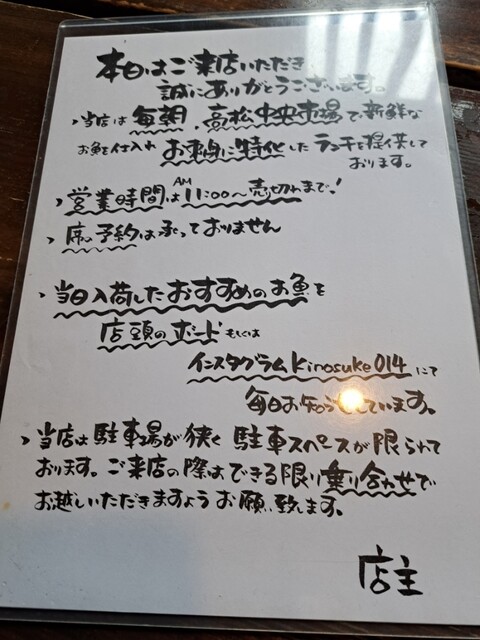 本日はご来店いただき
誠にありがとうございます。
、当店は毎朝、高松中央市場で新鮮な
お魚を仕入れ お刺身に特化したランチを提供して
おります。
、営業時間はAM11:00〜売切れまで!
、席予約は承っておりません
、当日入荷したおすすめのお魚を
店頭のボードもしくは
インスタグラムkinosuke014にて
毎日お知らせしています。
、当店は駐車場が狭く駐車スペースが限られて
おります。ご来店の際はできる限り乗り合わせで
お越しいただきますようお願い致します。
店主